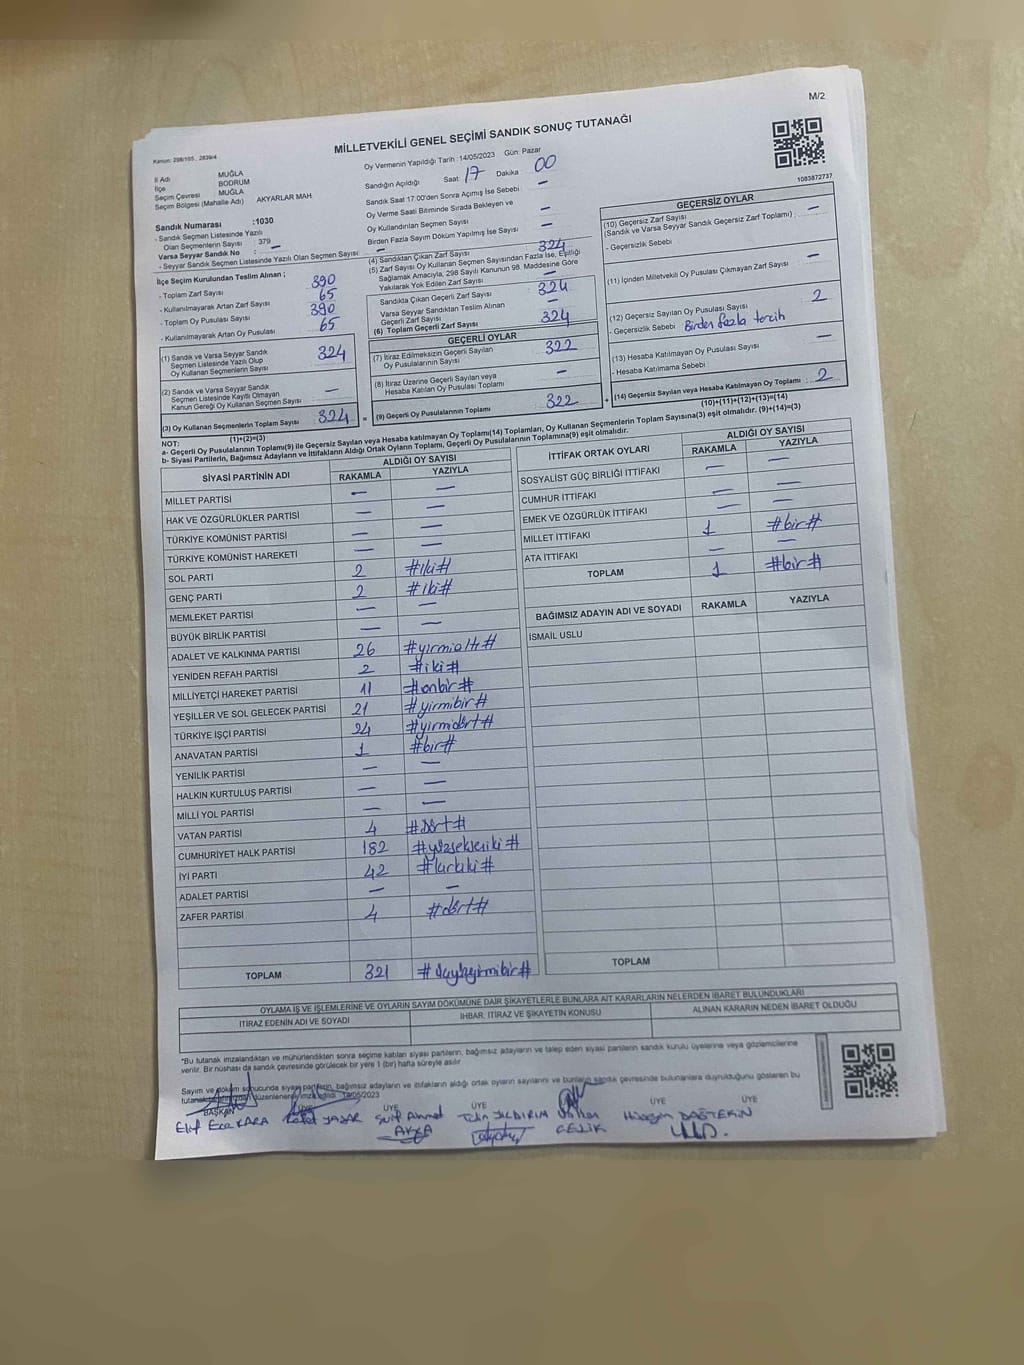 M/2
MİLLETVEKİLİ GENEL SEÇİMİ SANDIK SONUÇ TUTANAĞI
Kanun: 298/105 , 2839/4
Oy Vermenin Yapıldığı Tarih :14/05/2023 Gün: Pazar
1083872737
İl Adı MUĞLA
İlçe BODRUM
Seçim Çevresi MUĞLA
Seçim Bölgesi (Mahalle Adı) AKYARLAR MAH
Sandık Numarası :1030
- Sandık Seçmen Listesinde Yazılı
Olan Seçmenlerin Sayısı : 379
Varsa Seyyar Sandık No : —
- Seyyar Sandık Seçmen Listesinde Yazılı Olan Seçmen Sayısı : —
İlçe Seçim Kurulundan Teslim Alınan ;
- Toplam Zarf Sayısı 390
- Kullanılmayarak Artan Zarf Sayısı 65
- Toplam Oy Pusulası Sayısı 390
- Kullanılmayarak Artan Oy Pusulası 65
(1) Sandık ve Varsa Seyyar Sandık
Seçmen Listesinde Yazılı Olup
Oy Kullanan Seçmenlerin Sayısı 324
(2) Sandık ve Varsa Seyyar Sandık
Seçmen Listesinde Kayıtlı Olmayan
Kanun Gereği Oy Kullanan Seçmen Sayısı —
(3) Oy Kullanan Seçmenlerin Toplam Sayısı 324 =
(1)+(2)=(3)
Sandığın Açıldığı Saat: 17 Dakika 00
Sandık Saat 17:00'den Sonra Açmış İse Sebebi —
Oy Verme Saati Bitiminde Sırada Bekleyen ve
Oy Kullandırılan Seçmen Sayısı —
Birden Fazla Sayım Döküm Yapılmış İse Sayısı —
(4) Sandıktan Çıkan Zarf Sayısı 324
(5) Zarf Sayısı Oy Kullanan Seçmen Sayısından Fazla İse, Eşitliği
Sağlamak Amacıyla, 298 Sayılı Kanunun 98. Maddesine Göre
Yakılarak Yok Edilen Zarf Sayısı —
Sandıkta Çıkan Geçerli Zarf Sayısı 324
Varsa Seyyar Sandıktan Teslim Alınan
Geçerli Zarf Sayısı —
(6) Toplam Geçerli Zarf Sayısı 324
GEÇERLİ OYLAR
(7) İtiraz Edilmeksizin Geçerli Sayılan
Oy Pusulalarının Sayısı 322
(8) İtiraz Üzerine Geçerli Sayılan veya
Hesaba Katılan Oy Pusulası Toplamı —
(9) Geçerli Oy Pusulalarının Toplamı 322 +
GEÇERSİZ OYLAR
(10) Geçersiz Zarf Sayısı
(Sandık ve Varsa Seyyar Sandık Geçersiz Zarf Toplamı) : —
- Geçersizlik Sebebi
(11) İçinden Milletvekili Oy Pusulası Çıkmayan Zarf Sayısı —
(12) Geçersiz Sayılan Oy Pusulası Sayısı 2
- Geçersizlik Sebebi Birden fazla tercih
(13) Hesaba Katılmayan Oy Pusulası Sayısı —
- Hesaba Katılmama Sebebi
(14) Geçersiz Sayılan veya Hesaba Katılmayan Oy Toplamı 2
(10)+(11)+(12)+(13)=(14)
NOT:
a- Geçerli Oy Pusulalarının Toplamı(9) ile Geçersiz Sayılan veya Hesaba katılmayan Oy Toplamı(14) Toplamları, Oy Kullanan Seçmenlerin Toplam Sayısına(3) eşit olmalıdır. (9)+(14)=(3)
b- Siyasi Partilerin, Bağımsız Adayların ve İttifakların Aldığı Ortak Oyların Toplamı, Geçerli Oy Pusulalarının Toplamına(9) eşit olmalıdır.
SİYASİ PARTİNİN ADI ALDIĞI OY SAYISI
RAKAMLA YAZIYLA
MİLLET PARTİSİ — —
HAK VE ÖZGÜRLÜKLER PARTİSİ — —
TÜRKİYE KOMÜNİST PARTİSİ — —
TÜRKİYE KOMÜNİST HAREKETİ — —
SOL PARTİ 2 #iki#
GENÇ PARTİ 2 #iki#
MEMLEKET PARTİSİ — —
BÜYÜK BİRLİK PARTİSİ — —
ADALET VE KALKINMA PARTİSİ 26 #yirmialtı#
YENİDEN REFAH PARTİSİ 2 #iki#
MİLLİYETÇİ HAREKET PARTİSİ 11 #onbir#
YEŞİLLER VE SOL GELECEK PARTİSİ 21 #yirmibir#
TÜRKİYE İŞÇİ PARTİSİ 24 #yirmidört#
ANAVATAN PARTİSİ 1 #bir#
YENİLİK PARTİSİ — —
HALKIN KURTULUŞ PARTİSİ — —
MİLLİ YOL PARTİSİ — —
VATAN PARTİSİ 4 #dört#
CUMHURİYET HALK PARTİSİ 182 #yüzsekseniki#
İYİ PARTİ 42 #kırkiki#
ADALET PARTİSİ — —
ZAFER PARTİSİ 4 #dört#
TOPLAM 321 #üçyüzyirmibir#
İTTİFAK ORTAK OYLARI ALDIĞI OY SAYISI
RAKAMLA YAZIYLA
SOSYALİST GÜÇ BİRLİĞİ İTTİFAKI — —
CUMHUR İTTİFAKI — —
EMEK VE ÖZGÜRLÜK İTTİFAKI — —
MİLLET İTTİFAKI 1 #bir#
ATA İTTİFAKI — —
TOPLAM 1 #bir#
BAĞIMSIZ ADAYIN ADI VE SOYADI RAKAMLA YAZIYLA
İSMAİL USLU
TOPLAM
OYLAMA İŞ VE İŞLEMLERİNE VE OYLARIN SAYIM DÖKÜMÜNE DAİR ŞİKAYETLERLE BUNLARA AİT KARARLARIN NELERDEN İBARET BULUNDUKLARI
İTİRAZ EDENİN ADI VE SOYADI İHBAR, İTİRAZ VE ŞİKAYETİN KONUSU ALINAN KARARIN NEDEN İBARET OLDUĞU
*Bu tutanak imzalandıktan ve mühürlendikten sonra seçime katılan siyasi partilerin, bağımsız adayların ve talep eden siyasi partilerin sandık kurulu üyelerine veya gözlemcilerine
verilir. Bir nüshası da sandık çevresinde görülecek bir yere 1 (bir) hafta süreyle asılır
Sayım ve döküm sonucunda siyasi partilerin, bağımsız adayların ve ittifakların aldığı ortak oyların sayılarını ve bunların sandık çevresinde bulunanlara duyurulduğunu gösteren bu
düzenlenerek imza edildi. 14/05/2023
BAŞKAN ÜYE ÜYE ÜYE ÜYE ÜYE
Elif Ece KARA YAŞAR Ahmet YILDIRIM Hüseyin DAŞTEKİN
AKÇA ÇELİK